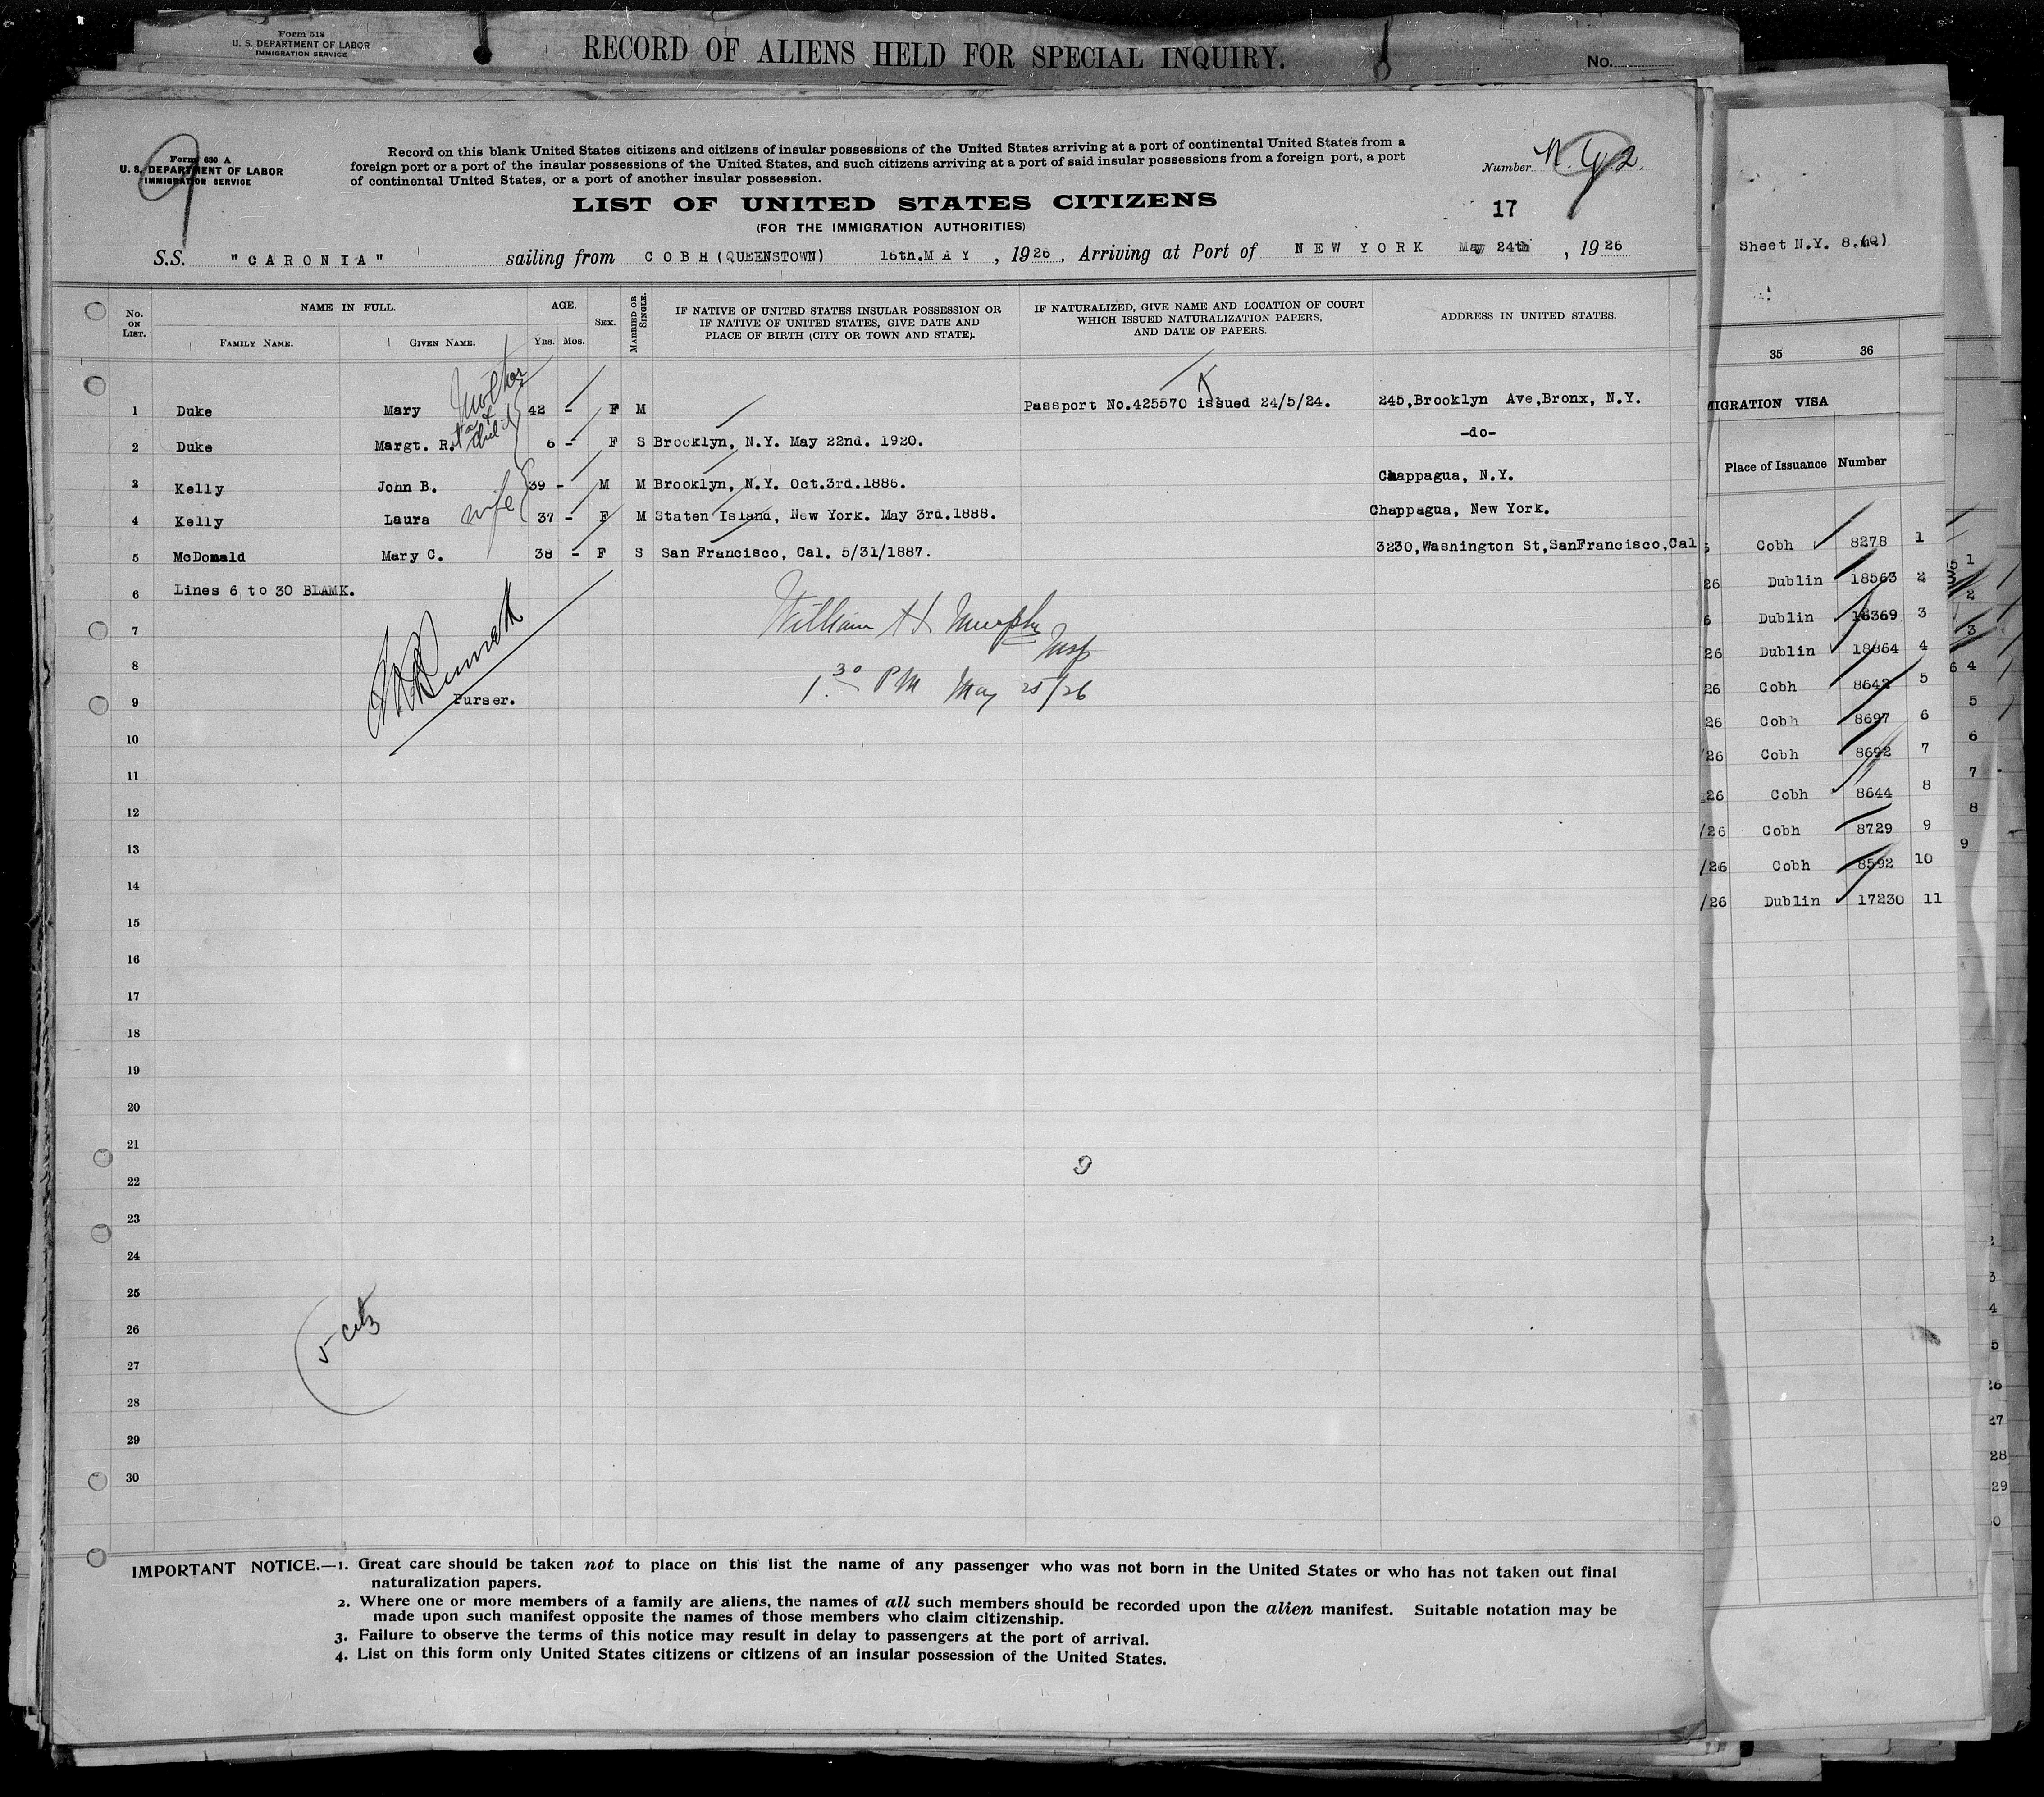 Form 518
U. S. DEPARTMENT OF LABOR
IMMIGRATION SERVICE
RECORD OF ALIENS HELD FOR SPECIAL INQUIRY.
No.
9
Form 630 A
U. S. DEPARTMENT OF LABOR
IMMIGRATION SERVICE
Record on this blank United States citizens and citizens of insular possessions of the United States arriving at a port of continental United States from a
foreign port or a port of the insular possessions of the United States, and such citizens arriving at a port of said insular possessions from a foreign port, a port
of continental United States, or a port of another insular possession.
Number N. Y. 2.
LIST OF UNITED STATES CITIZENS
17
(FOR THE IMMIGRATION AUTHORITIES)
S.S. "CARONIA" sailing from COBH (QUEENSTOWN) 16th. MAY, 1926, Arriving at Port of NEW YORK May 24th, 1926
No. ON LIST.
NAME IN FULL.
FAMILY NAME.
GIVEN NAME.
AGE.
YRS. MOS.
SEX.
MARRIED OR SINGLE.
IF NATIVE OF UNITED STATES INSULAR POSSESSION OR
IF NATIVE OF UNITED STATES, GIVE DATE AND
PLACE OF BIRTH (CITY OR TOWN AND STATE).
IF NATURALIZED, GIVE NAME AND LOCATION OF COURT
WHICH ISSUED NATURALIZATION PAPERS,
AND DATE OF PAPERS.
ADDRESS IN UNITED STATES.
1 Duke Mary Mother 42 - F M Passport No.425570 issued 24/5/24. 245,Brooklyn Ave,Bronx, N.Y.
2 Duke Margt. R. & child 6 - F S Brooklyn, N.Y. May 22nd. 1920. -do-
3 Kelly John B. 39 - M M Brooklyn, N.Y. Oct.3rd.1886. Chappagua, N.Y.
4 Kelly Laura wife 37 - F M Staten Island, New York. May 3rd.1888. Chappagua, New York.
5 McDonald Mary C. 38 - F S San Francisco, Cal. 5/31/1887. 3230,Washington St,SanFrancisco,Cal
6 Lines 6 to 30 BLAMK.
7 William H. Murphy
Insp
8
1.30 PM May 25/26
9 Purser.
10
11
12
13
14
15
16
17
18
19
20
21
9
22
23
24
25
26
5 citz
27
28
29
30
IMPORTANT NOTICE.—1. Great care should be taken not to place on this list the name of any passenger who was not born in the United States or who has not taken out final
naturalization papers.
2. Where one or more members of a family are aliens, the names of all such members should be recorded upon the alien manifest. Suitable notation may be
made upon such manifest opposite the names of those members who claim citizenship.
3. Failure to observe the terms of this notice may result in delay to passengers at the port of arrival.
4. List on this form only United States citizens or citizens of an insular possession of the United States.
Sheet N.Y. 8.
35 36
MIGRATION VISA
Place of Issuance Number
Cobh 8278 1
26 Dublin 18563 2
6 Dublin 18369 3
26 Dublin 18864 4
26 Cobh 8642 5
26 Cobh 8697 6
/26 Cobh 8692 7
26 Cobh 8644 8
/26 Cobh 8729 9
/26 Cobh 8592 10
/26 Dublin 17230 11
1
2
3
4
5
6
7
8
9
3
4
5
27
28
29